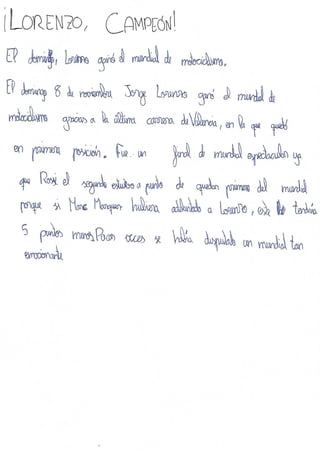 ¡LORENZO, CAMPEÓN!
El domingo, Lorenzo ganó el mundial de motociclismo.
El domingo 8 de noviembre, Jorge Lorenzo ganó el mundial de
motociclismo gracias a la última carrera de Valencia, en la que quedó
en primera posición. Fue un final de mundial espectacular ya
que Rossi el segundo estubo a punto de quedar primero del mundial
porque si Marc Marquez hubiera adelantado a Lorenzo, este tendría
5 puntos menos. Pocas veces se había disputado un mundial tan
emocionante